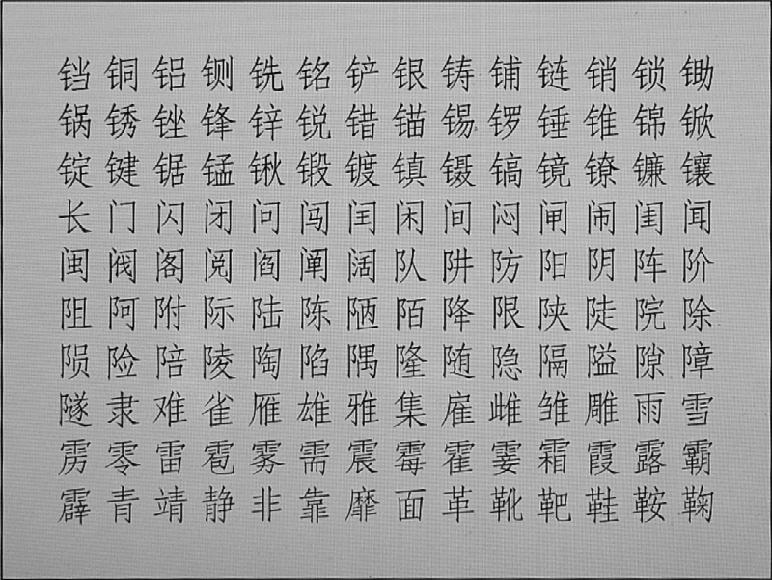 铛铜铝铡铣铭铲银铸铺链销锁锄
锅锈锉锋锌锐错锚锡锣锤锥锦锨
锭键锯锰锹锻镀镇镊镐镜镣镰镶
长门闪闭问闯闰闲间闷闸闹闺闻
闽阀阁阅阎阐阔队阱防阳阴阵阶
阻阿附际陆陈陋陌降限陕陡院除
陨险陪陵陶陷隅隆随隐隔隘隙障
隧隶难雀雁雄雅集雇雌雏雕雨雪
雳零雷雹雾需震霉霍霎霜霞露霸
霹青靖静非靠靡面革靴靶鞋鞍鞠